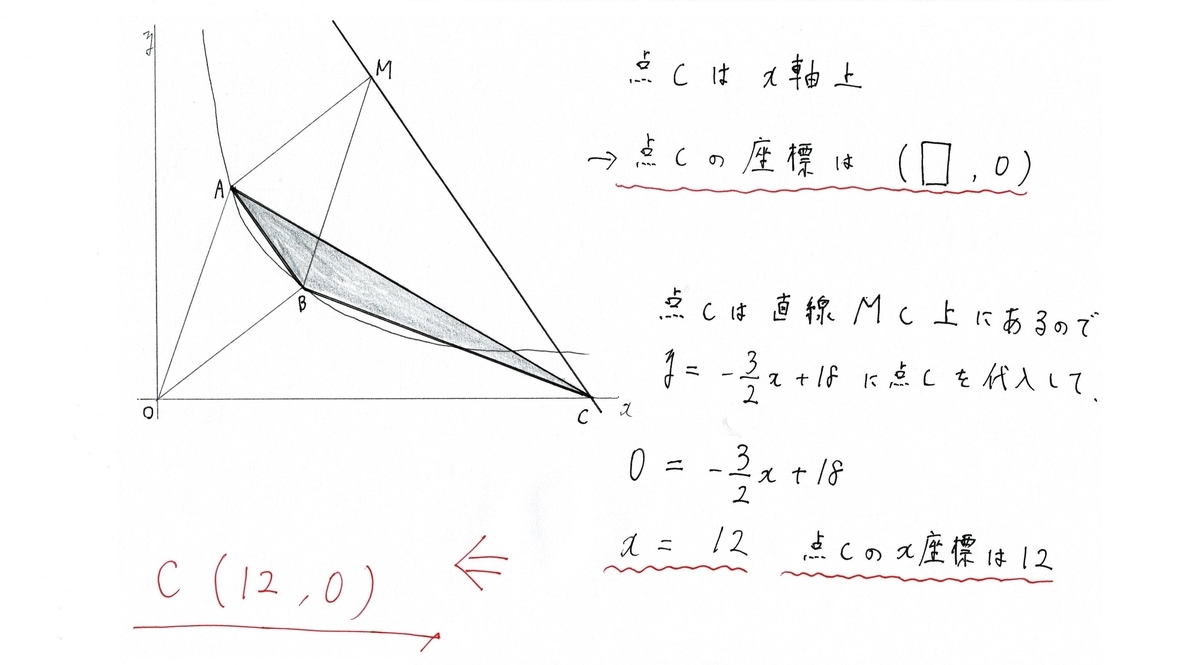 y
M
A
B
O
C
x
点Cは x軸上
→ 点Cの座標は (□, 0)
点Cは直線MC上にあるので
y = -3/2 x + 18 に点Cを代入して.
0 = -3/2 x + 18
x = 12 点Cのx座標は12
⇐
C (12, 0)